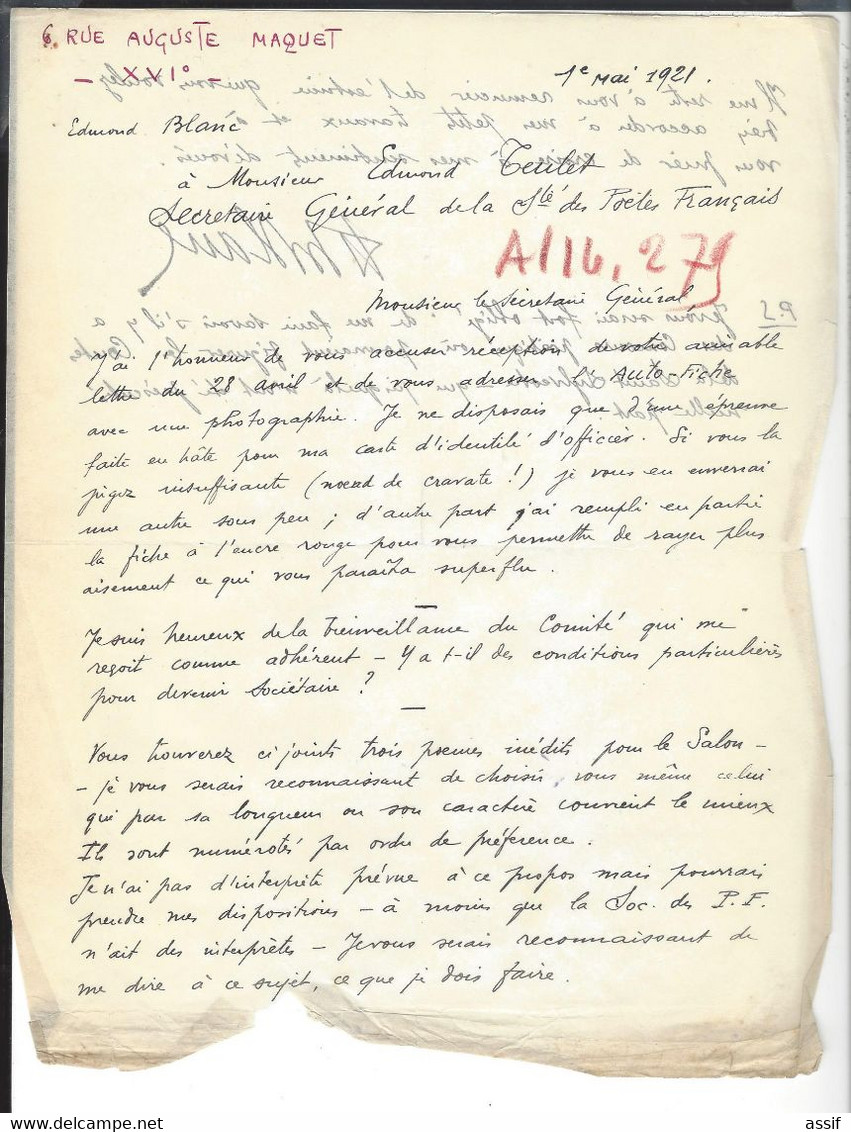 6. RUE AUGUSTE MAQUET
- XVI° -
1e mai 1921.
Edmond Blanc
à Monsieur Edmond Teulet
Secretaire Général de la Sté des Poètes Français
A/16, 279
Monsieur le Secrétaire Général,
J'ai l'honneur de vous accuser réception de votre aimable
lettre du 28 avril et de vous adresser l'Auto-Fiche
avec une photographie. Je ne disposais que d'une épreuve
faite en hâte pour ma carte d'identité d'officier. Si vous la
jugez insuffisante (noeud de cravate !) je vous en enverrai
une autre sous peu ; d'autre part j'ai rempli en partie
la fiche à l'encre rouge pour vous permettre de rayer plus
aisement ce qui vous paraitra superflu.
Je suis heureux de la bienveillance du Comité qui me
reçoit comme adhérent - Y a t-il des conditions particulières
pour devenir Sociétaire ?
Vous trouverez ci joints trois poemes inédits pour le Salon -
- je vous serais reconnaissant de choisir vous même celui
qui par sa longueur ou son caractère convient le mieux
Ils sont numérotés par ordre de préférence.
Je n'ai pas d'interprète prévue à ce propos mais pourrais
prendre mes dispositions - à moins que la Soc. des P.F.
n'ait des interprètes - Je vous serais reconnaissant de
me dire à ce sujet, ce que je dois faire.
assif